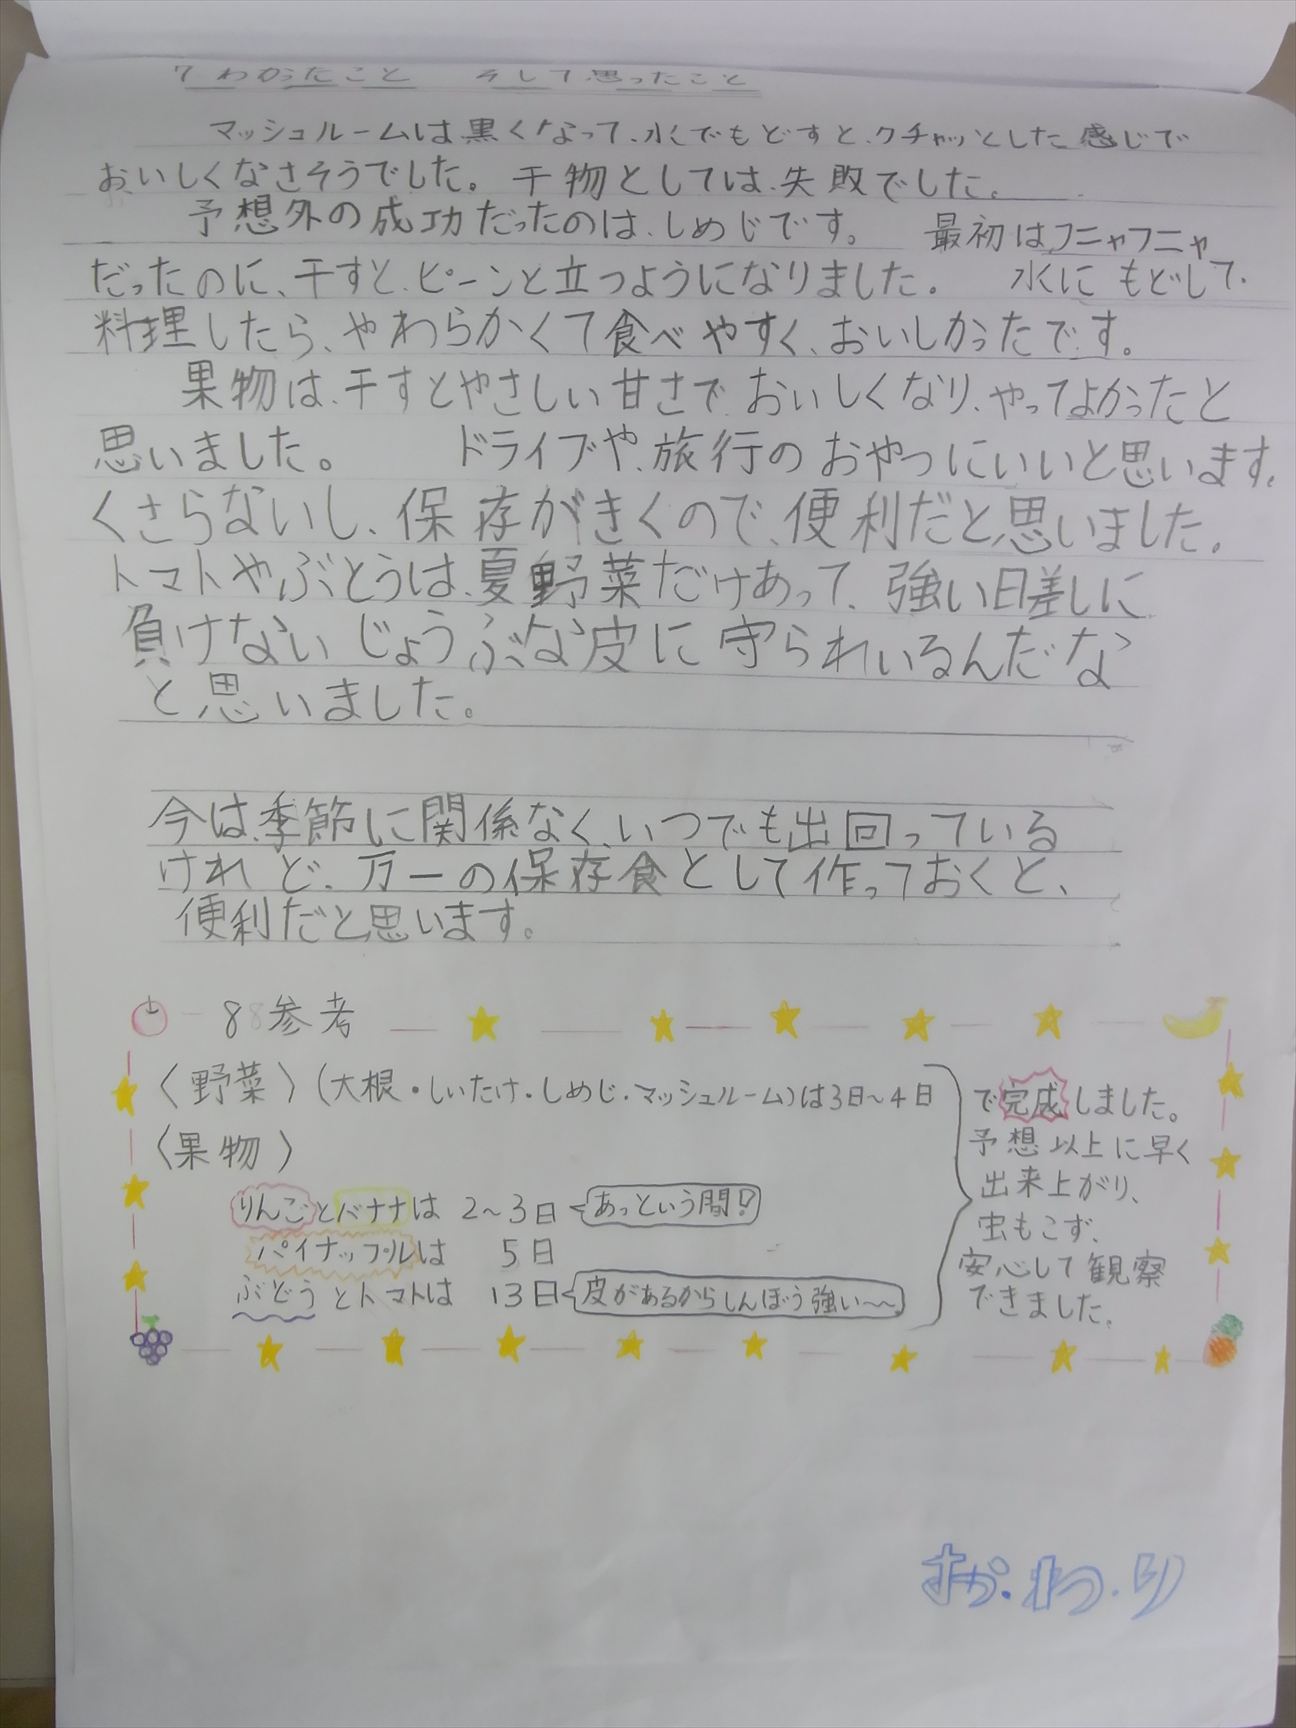 7 わかったこと そして思ったこと
マッシュルームは黒くなって、水でもどすと、クチャッとした感じで
おいしくなさそうでした。干物としては、失敗でした。
予想外の成功だったのは、しめじです。 最初はフニャフニャ
だったのに、干すと、ピーンと立つようになりました。 水にもどして、
料理したら、やわらかくて食べやすく、おいしかったです。
果物は、干すとやさしい甘さで、おいしくなり、やってよかったと
思いました。 ドライブや、旅行のおやつにいいと思います。
くさらないし、保存がきくので、便利だと思いました。
トマトやぶとうは、夏野菜だけあって、強い日差しに
負けないじょうぶな皮に守られいるんだな
と思いました。
今は、季節に関係なく、いつでも出回っている
けれど、万一の保存食として作っておくと、
便利だと思います。
8 参考
〈野菜〉(大根・しいたけ・しめじ・マッシュルーム)は3日~4日
〈果物〉
りんごとバナナは 2~3日 あっという間!
パイナップルは 5日
ぶどうとトマトは 13日 皮があるからしんぼう強い~~
で完成しました。
予想以上に早く
出来上がり、
虫もこず、
安心して観察
できました。
おか・わり